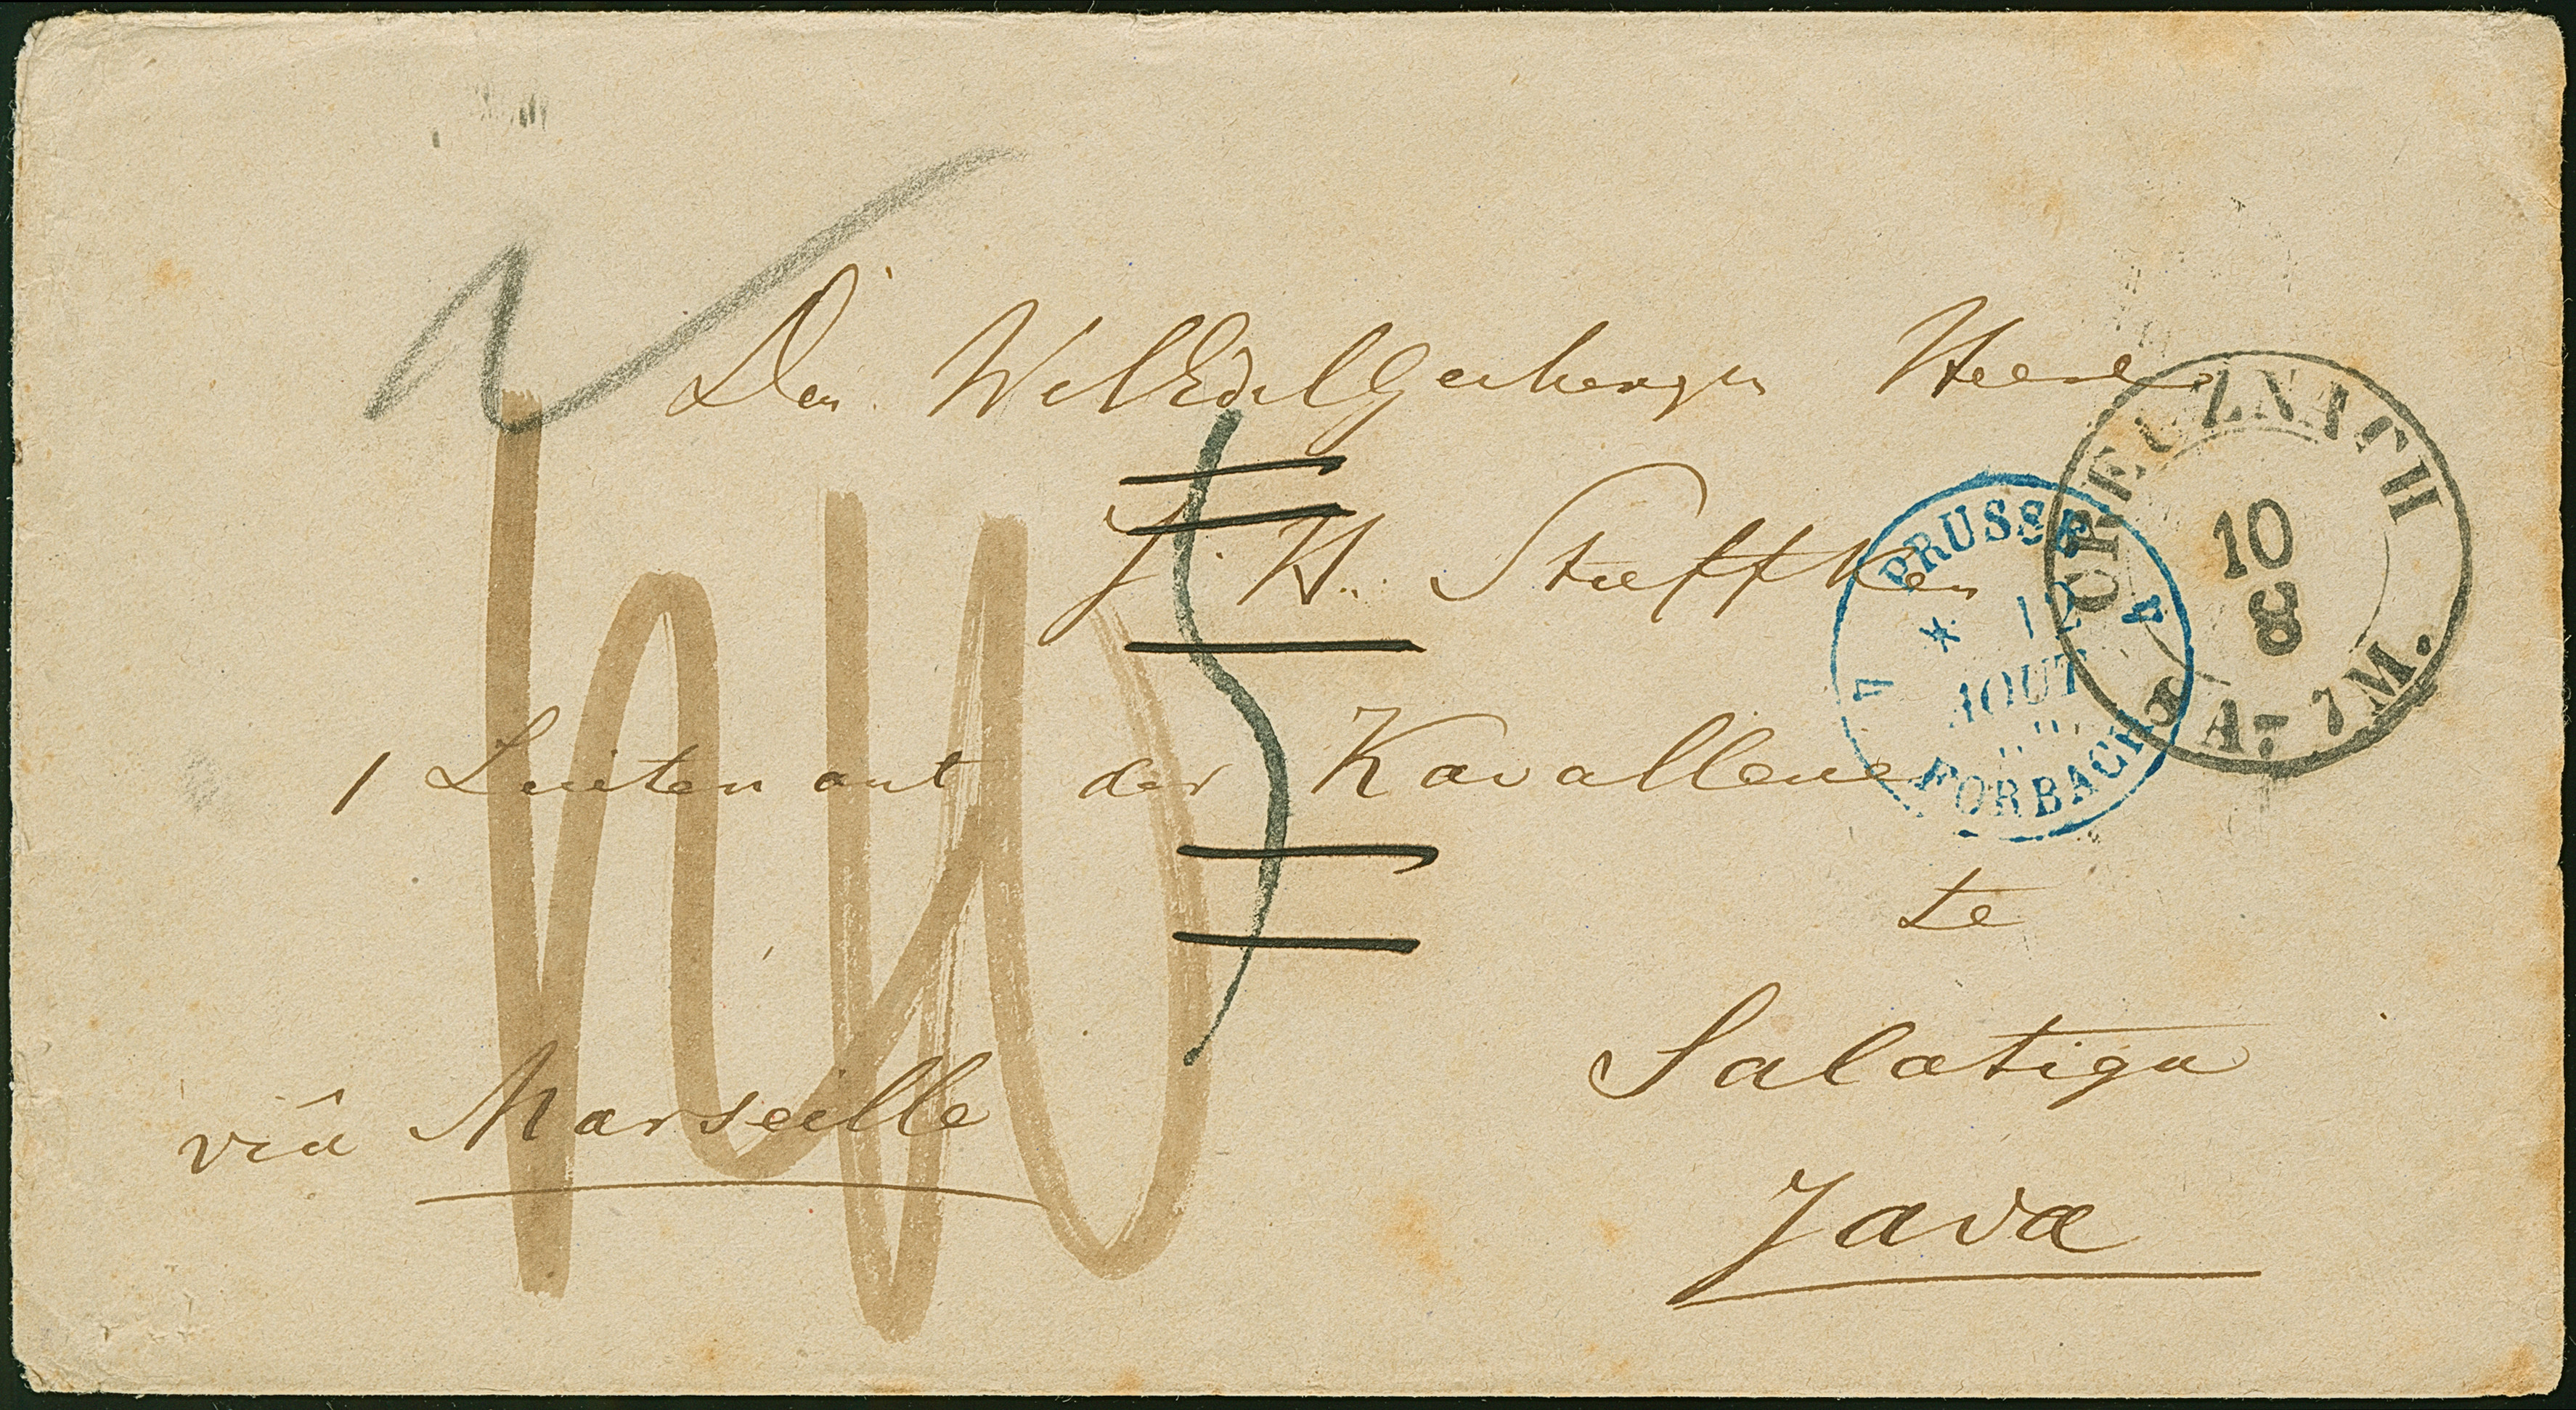 Den WelEdelGestrengen Heere
J. H. Steffken
1 Luitenant der Kavallerie
te
Salatiga
Java
via Marseille
CREUZNACH
10
8
7M.
PRUSSE
12
AOUT
FORBACH